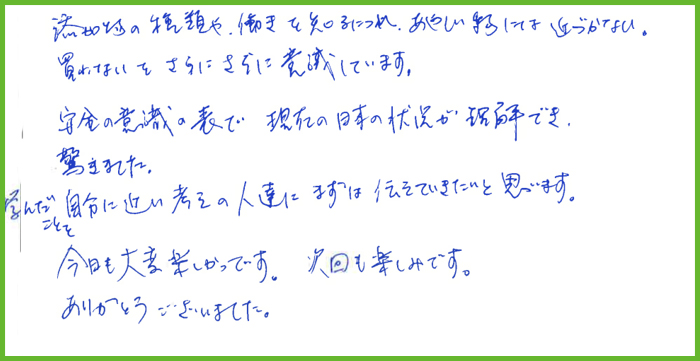 添加物の種類や、働きを知るにつれ、あやしい物には近づかない。
買わないを さらにさらに意識しています。
安全の意識の表で 現在の日本の状況が理解でき、
驚きました。
学んだことを自分に近い考えの人達に まずは伝えていきたいと思います。
今日も大変楽しかったです。 次回も楽しみです。
ありがとうございました。